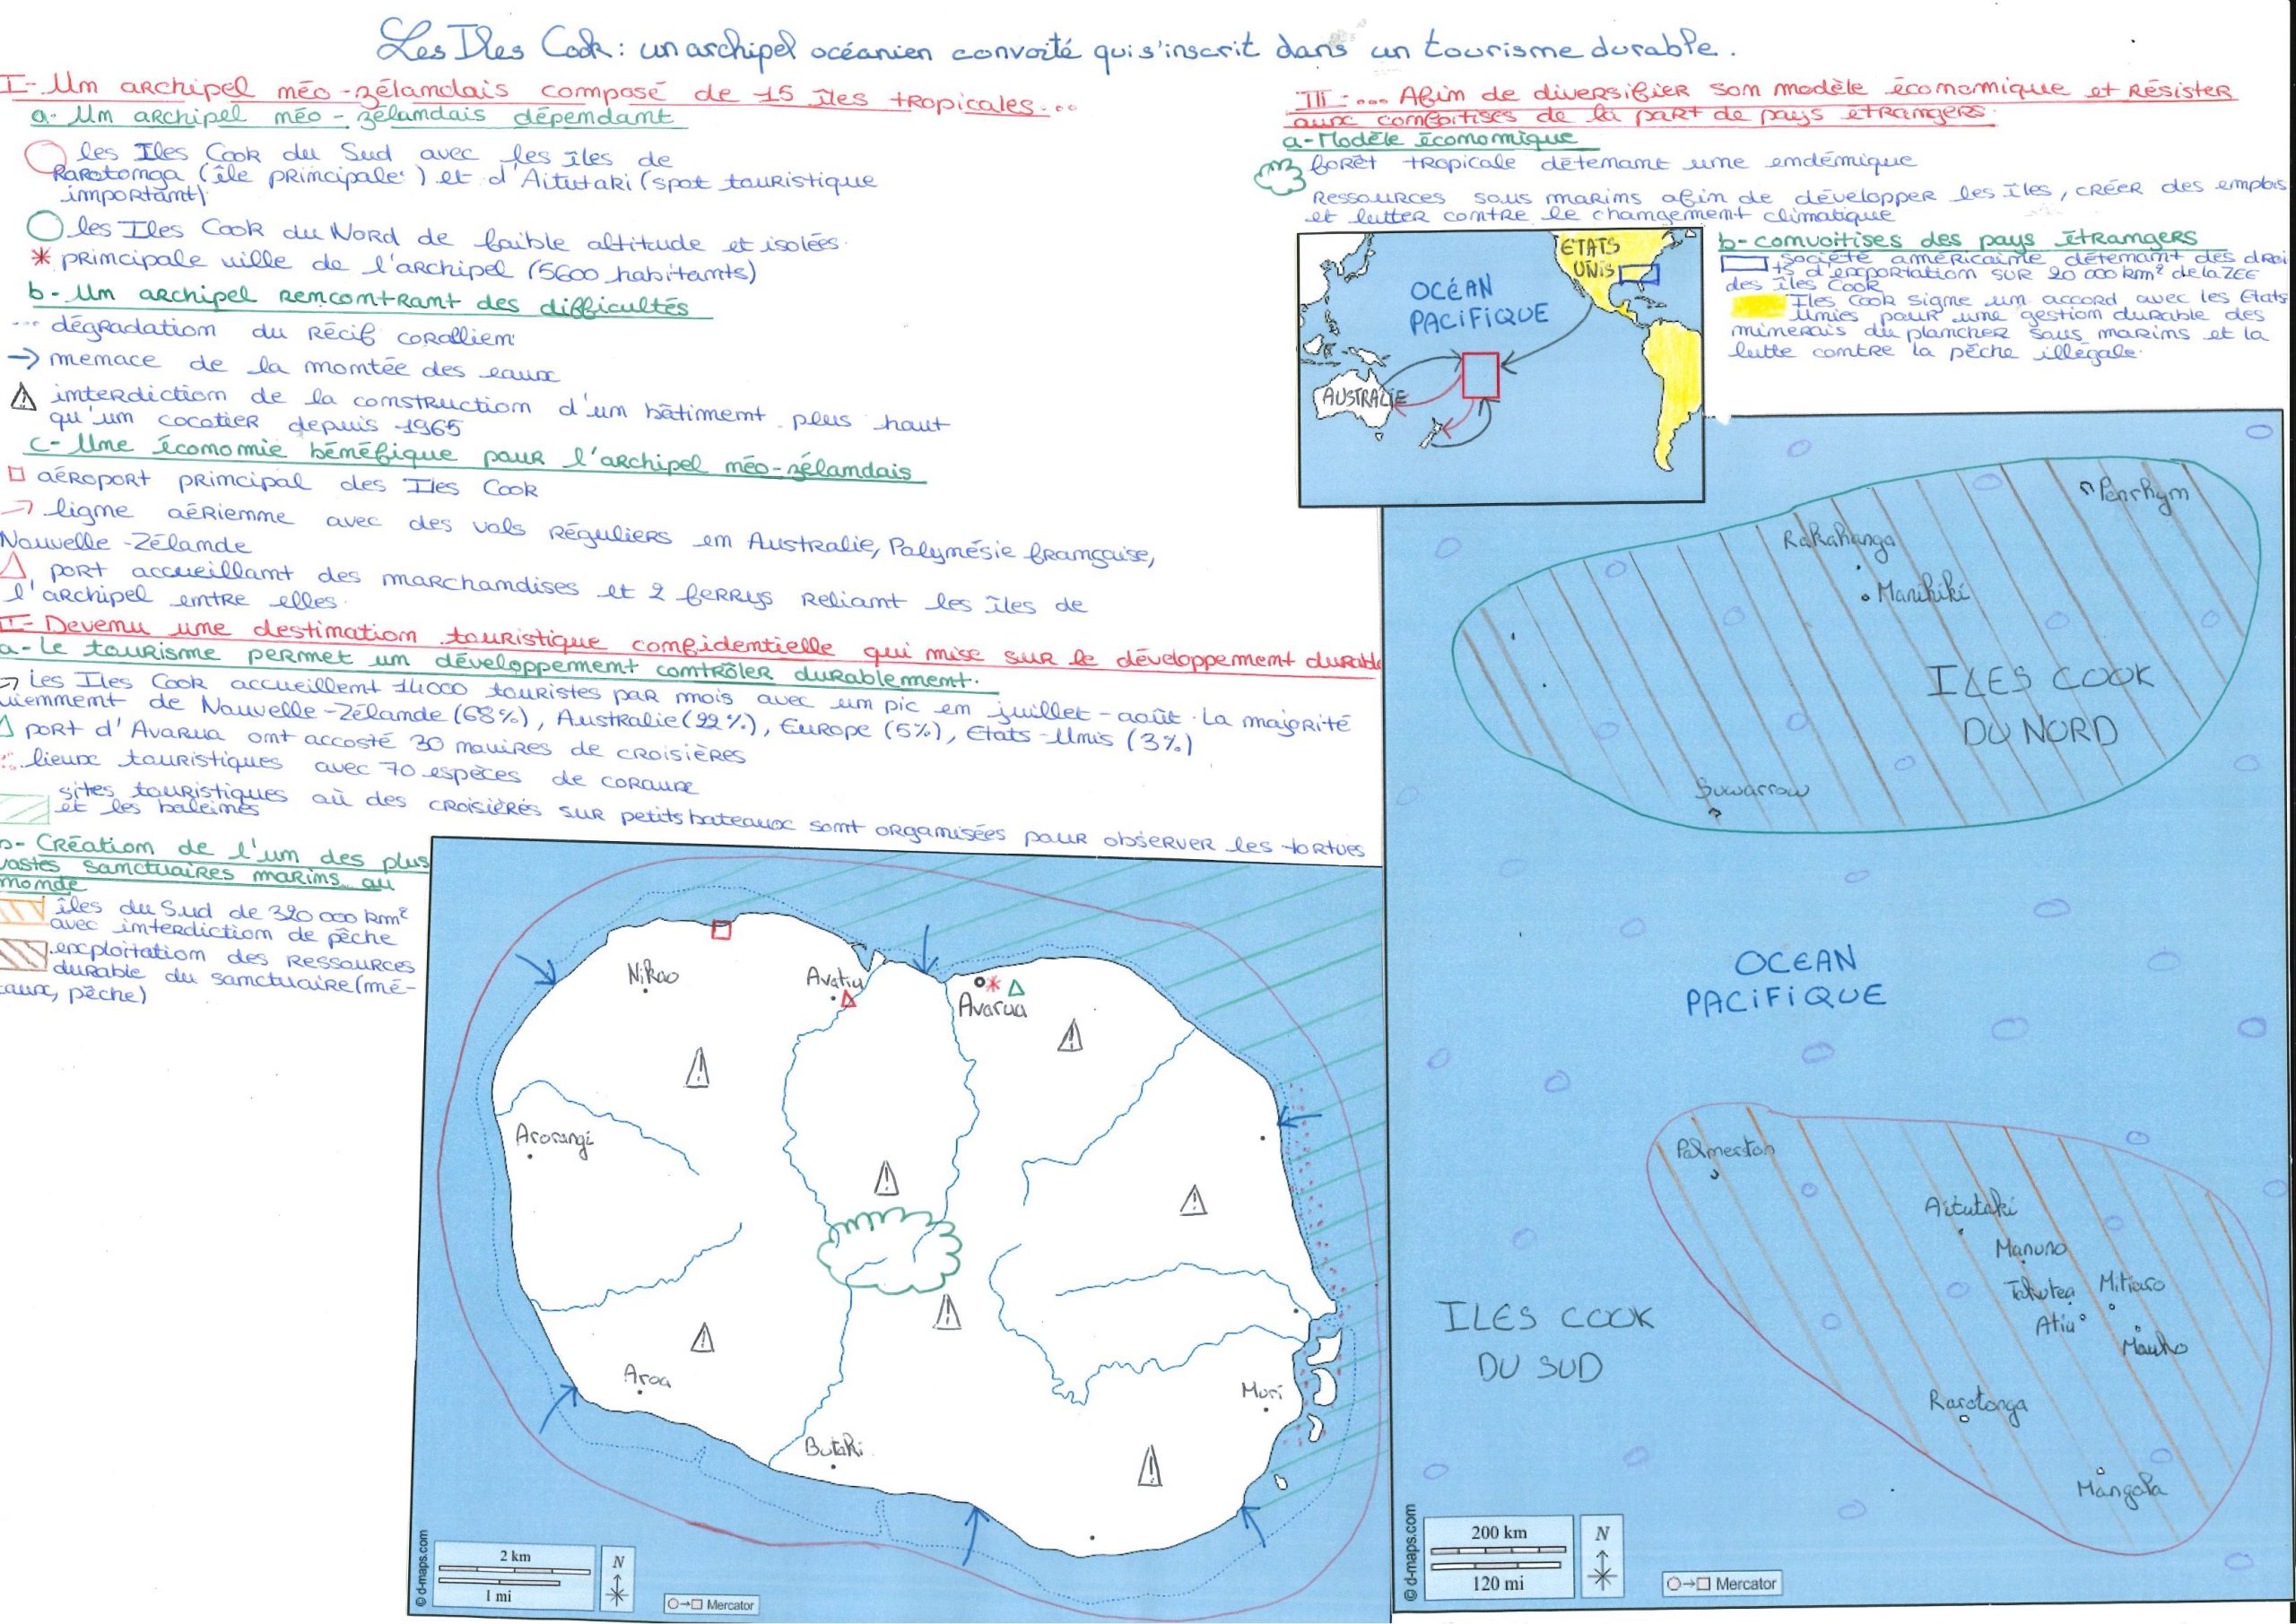 Les Iles Cook : un archipel océanien convoité qui s'inscrit dans un tourisme durable.
I- Un archipel néo-zélandais composé de 15 îles tropicales...
a- Un archipel néo-zélandais dépendant
les Iles Cook du Sud avec les îles de
Rarotonga (île principale) et d'Aitutaki (spot touristique
important)
les Iles Cook du Nord de faible altitude et isolées.
* principale ville de l'archipel (5600 habitants)
b- Un archipel rencontrant des difficultés
... dégradation du récif corallien
→ menace de la montée des eaux
interdiction de la construction d'un bâtiment plus haut
qu'un cocotier depuis 1965
c- Une économie bénéfique pour l'archipel néo-zélandais
aéroport principal des Iles Cook
→ ligne aérienne avec des vols réguliers en Australie, Polynésie française,
Nouvelle-Zélande
port accueillant des marchandises et 2 ferrys reliant les îles de
l'archipel entre elles.
II- Devenu une destination touristique confidentielle qui mise sur le développement durable
a- Le tourisme permet un développement contrôler durablement.
→ Les Iles Cook accueillent 14000 touristes par mois avec un pic en juillet-août. La majorité
viennment de Nouvelle-Zélande (68%), Australie (22%), Europe (5%), Etats-Unis (3%)
port d'Avarua ont accosté 30 navires de croisières
lieux touristiques avec 70 espèces de coraux
sites touristiques où des croisièrés sur petits bateaux sont organisées pour observer les tortues
et les baleines
b- Création de l'un des plus
vastes sanctuaires marins au
monde
îles du Sud de 320 000 km²
avec interdiction de pêche
exploitation des ressources
durable du sanctuaire (mé-
aux, pêche)
III-... Afin de diversifier son modèle économique et résister
aux convoitises de la part de pays étrangers.
a- Modèle économique
forêt tropicale détenant une endémique
Ressources sous marins afin de développer les îles, créer des emplois
et lutter contre le changement climatique
b- convoitises des pays étrangers
société américaine détenant des droi
ts d'exportation sur 20 000 km² de la ZEE
des îles Cook
Iles Cook signe un accord avec les Etats
Unies pour une gestion durable des
minerais du plancher sous marins et la
lutte contre la pêche illégale.
ETATS
UNIS
OCÉAN
PACIFIQUE
AUSTRALIE
Penrhym
Rakahanga
Manihiki
ILES COOK
DU NORD
Suwarrow
OCEAN
PACIFIQUE
Palmerston
Aitutaki
Manuno
Takutea
Mitiaro
Atiu
Mauko
ILES COOK
DU SUD
Rarotonga
Mangala
© d-maps.com
200 km
120 mi
N
Mercator
Nikao
Avatiu
Avarua
Arorangi
Aroa
Butaki
Muri
© d-maps.com
2 km
1 mi
N
Mercator